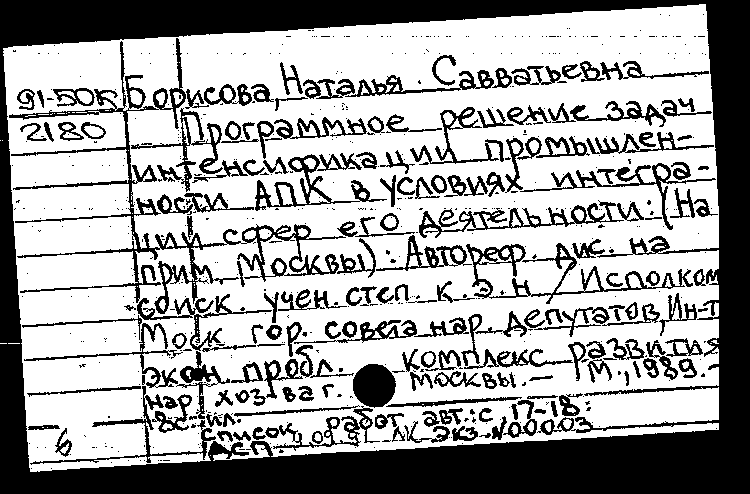 91-50К Борисова, Наталья Савватьевна
2180 Программное решение задач
интенсификации промышлен-
ности АПК в условиях интегра-
ции сфер его деятельности: (На
прим. Москвы): Автореф. дис. на
соиск. учен. степ. к.э.н / Исполком
Моск. гор. совета нар. депутатов, Ин-т
экон пробл. комплекс развития
нар. хоз-ва г. Москвы. — М., 1989. -
18с ил.
Список работ авт.: с. 17-18:
ДСП. 09 91 ЭКЗ. N00003
6